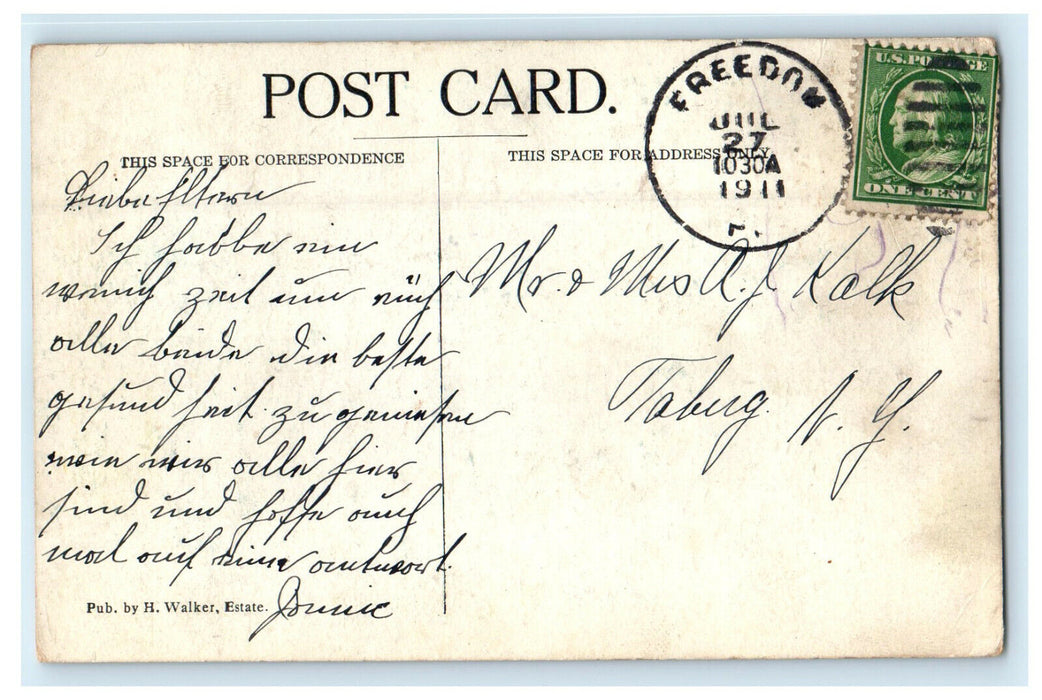 POST CARD.
THIS SPACE FOR CORRESPONDENCE
THIS SPACE FOR ADDRESS ONLY
FREEDOM
JUL
27
1030A
1911
U.S. POSTAGE
ONE CENT
Liebe Eltern
Ich habbe ein
wenich zeit um euch
alle beide die beste
gesundheit zu geniesen
wie wir alle hier
sind und hoffe auch
mal auf eine antwort.
Pub. by H. Walker, Estate.
Mr. & Mrs A. J Kalk
Taberg. N. Y.